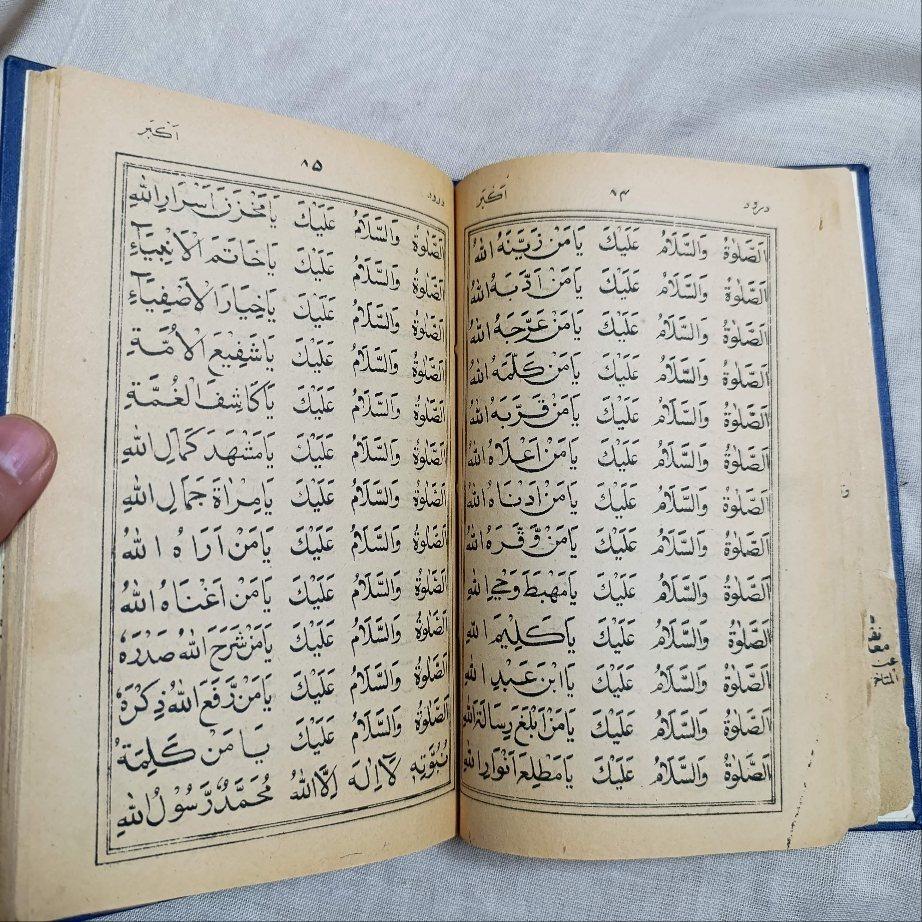 درود ٨٤ اَكْبَر
اَلصَّلٰوةُ وَالسَّلَامُ عَلَيْكَ يَامَنْ زَيَّنَهُ اللهُ
اَلصَّلٰوةُ وَالسَّلَامُ عَلَيْكَ يَامَنْ اَدَّبَهُ اللهُ
اَلصَّلٰوةُ وَالسَّلَامُ عَلَيْكَ يَامَنْ عَرَّجَهُ اللهُ
اَلصَّلٰوةُ وَالسَّلَامُ عَلَيْكَ يَامَنْ كَلَّمَهُ اللهُ
اَلصَّلٰوةُ وَالسَّلَامُ عَلَيْكَ يَامَنْ قَرَّبَهُ اللهُ
اَلصَّلٰوةُ وَالسَّلَامُ عَلَيْكَ يَامَنْ اَعْلَاهُ اللهُ
اَلصَّلٰوةُ وَالسَّلَامُ عَلَيْكَ يَامَنْ اَدْنَاهُ اللهُ
اَلصَّلٰوةُ وَالسَّلَامُ عَلَيْكَ يَامَنْ وَّقَّرَهُ اللهُ
اَلصَّلٰوةُ وَالسَّلَامُ عَلَيْكَ يَامَهْبَطَ وَحْيِ اللهِ
اَلصَّلٰوةُ وَالسَّلَامُ عَلَيْكَ يَاكَلِيْمَ اللهِ
اَلصَّلٰوةُ وَالسَّلَامُ عَلَيْكَ يَاابْنَ عَبْدِ اللهِ
اَلصَّلٰوةُ وَالسَّلَامُ عَلَيْكَ يَامَنْ اَبْلَغَ رِسَالَةَ اللهِ
اَلصَّلٰوةُ وَالسَّلَامُ عَلَيْكَ يَامَطْلِعَ اَنْوَارِ اللهِ
درود ٨۵ اَكْبَر
اَلصَّلٰوةُ وَالسَّلَامُ عَلَيْكَ يَامَخْزَنَ اَسْرَارِ اللهِ
اَلصَّلٰوةُ وَالسَّلَامُ عَلَيْكَ يَاخَاتَمَ الْاَنْبِيَآءِ
اَلصَّلٰوةُ وَالسَّلَامُ عَلَيْكَ يَاخِيَارَ الْاَصْفِيَآءِ
اَلصَّلٰوةُ وَالسَّلَامُ عَلَيْكَ يَاشَفِيْعَ الْاُمَّةِ
اَلصَّلٰوةُ وَالسَّلَامُ عَلَيْكَ يَاكَاشِفَ الْغُمَّةِ
اَلصَّلٰوةُ وَالسَّلَامُ عَلَيْكَ يَامَشْهَدَ كَمَالِ اللهِ
اَلصَّلٰوةُ وَالسَّلَامُ عَلَيْكَ يَامِرْاٰةَ جَمَالِ اللهِ
اَلصَّلٰوةُ وَالسَّلَامُ عَلَيْكَ يَامَنْ اَرَاهُ اللهُ
اَلصَّلٰوةُ وَالسَّلَامُ عَلَيْكَ يَامَنْ اَغْنَاهُ اللهُ
اَلصَّلٰوةُ وَالسَّلَامُ عَلَيْكَ يَامَنْ شَرَحَ اللهُ صَدْرَهٗ
اَلصَّلٰوةُ وَالسَّلَامُ عَلَيْكَ يَامَنْ رَّفَعَ اللهُ ذِكْرَهٗ
اَلصَّلٰوةُ وَالسَّلَامُ عَلَيْكَ يَامَنْ كَلِمَةُ
نُبُوَّتِهٖ لَآ اِلٰهَ اِلَّا اللهُ مُحَمَّدٌ رَّسُوْلُ اللهِ